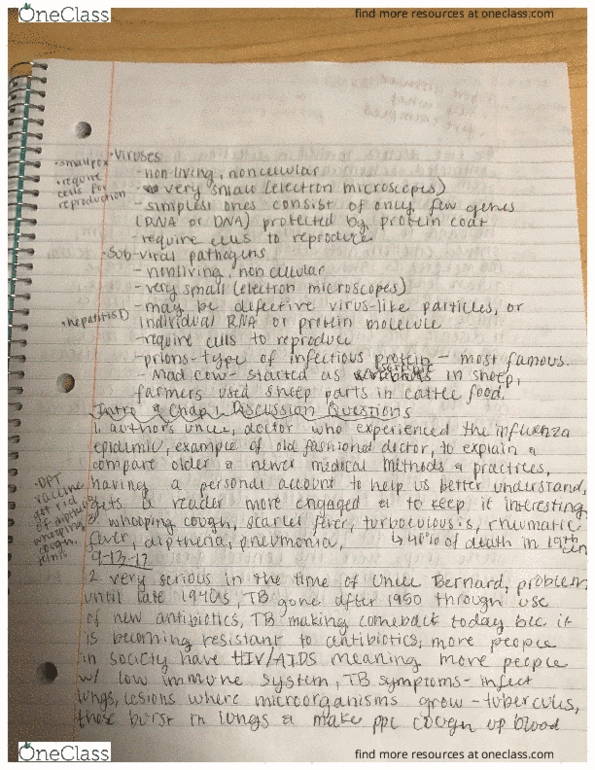 OneClass
find more resources at oneclass.com
·Viruses
·smallpox
- nonliving, noncellular
·require cells for reproduction
- very small (electron microscopes)
- simplest ones consist of only few genes
(RNA or DNA) protected by protein coat
- require cells to reproduce
·Sub-viral pathogens
- nonliving, noncellular
- very small (electron microscopes)
- may be defective virus-like particles, or
·hepatitis D
individual RNA or protein molecule
- require cells to reproduce
- prions - type of infectious protein - most famous.
- Mad cow - started as in sheep,
farmers used sheep parts in cattle food.
Intro & Chap 1 Discussion Questions
1. authors uncle, doctor who experienced the influenza
epidemic, example of old fashional doctor, to explain &
compare older & newer medical methods & practices,
having a personal account to help us better understand,
gets a reader more engaged & to keep it interesting
·DPT
vaccine
get rid
of diptheria
whooping
cough,
& whooping cough, scarlet fever, turboculousis, rheumatic
fever, diptheria, pneumonia, ↳ 40% of death in 19th cen
9-13-17
2 very serious in the time of Uncle Bernard, problem
until late 1940s, TB gone after 1950 through use
of new antibiotics, TB making comeback today b/c it
is becoming resistant to antibiotics, more people
in society have HIV/AIDS meaning more people
w/ low immune system, TB symptoms - infect
lungs, lesions where microorganisms grow - tubercules,
those burst in lungs & make ppl cough up blood
OneClass
find more resources at oneclass.com